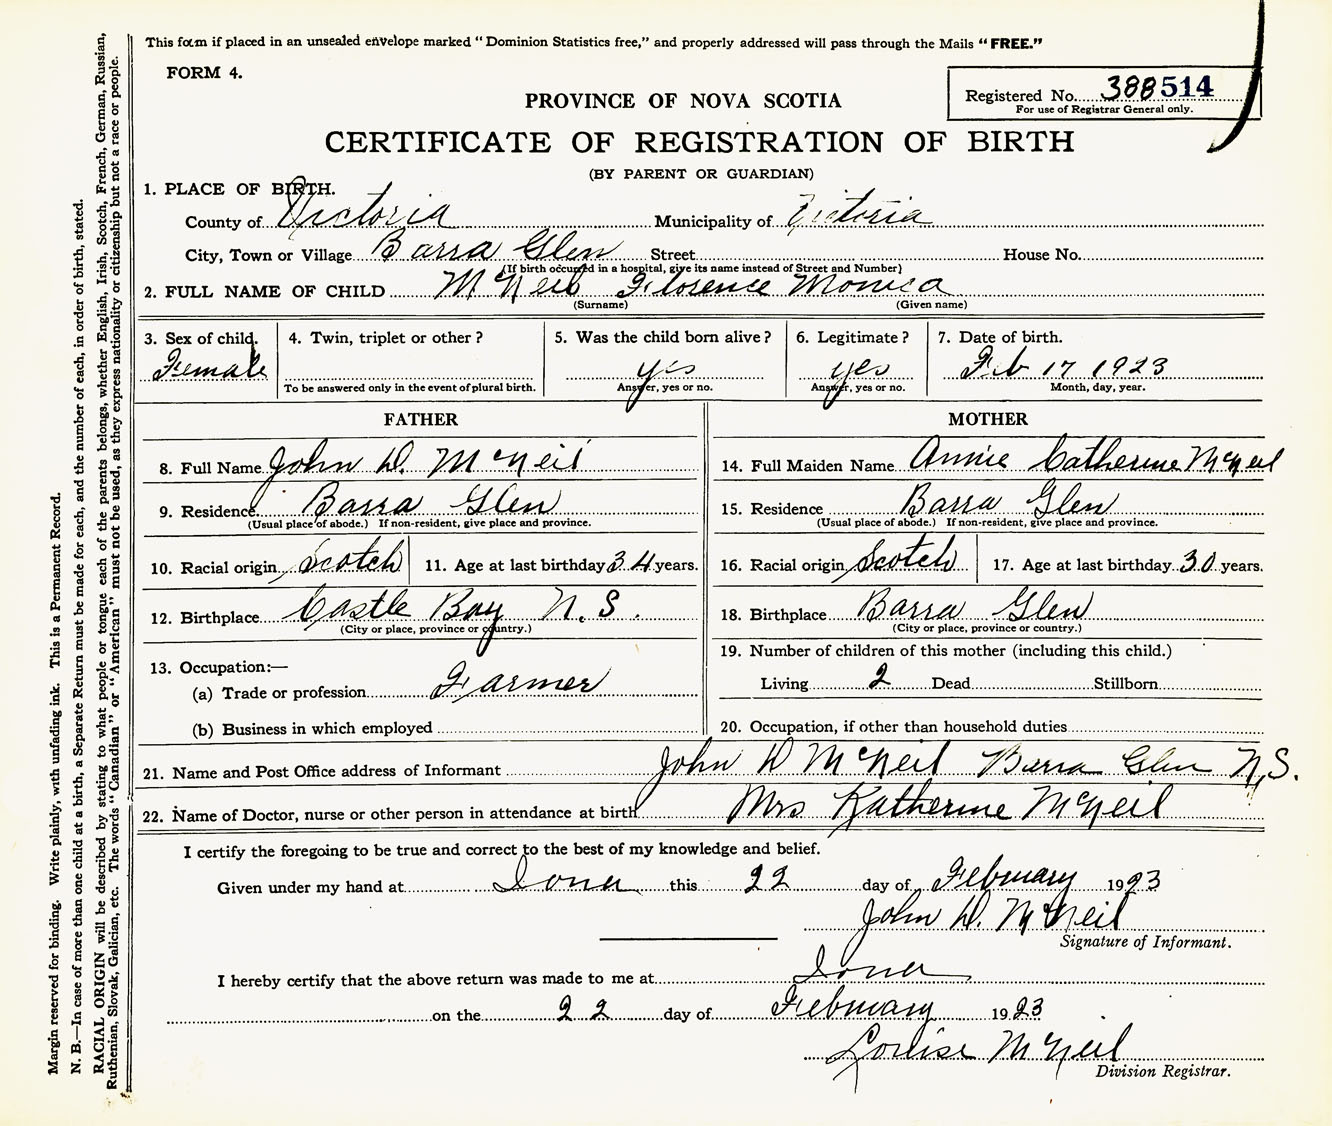 This form if placed in an unsealed envelope marked "Dominion Statistics free," and properly addressed will pass through the Mails "FREE."
FORM 4.
Registered No. 388514
For use of Registrar General only.
PROVINCE OF NOVA SCOTIA
CERTIFICATE OF REGISTRATION OF BIRTH
(BY PARENT OR GUARDIAN)
1. PLACE OF BIRTH.
County of Victoria Municipality of Victoria
City, Town or Village Barra Glen Street House No.
(If birth occurred in a hospital, give its name instead of Street and Number)
2. FULL NAME OF CHILD McNeil Florence Monica
(Surname) (Given name)
3. Sex of child. 4. Twin, triplet or other? 5. Was the child born alive? 6. Legitimate? 7. Date of birth.
Female yes yes Feb 17 1923
To be answered only in the event of plural birth. Answer, yes or no. Answer, yes or no. Month, day, year.
FATHER
8. Full Name John D. McNeil
9. Residence Barra Glen
(Usual place of abode.) If non-resident, give place and province.
10. Racial origin Scotch 11. Age at last birthday 34 years.
12. Birthplace Castle Bay N.S.
(City or place, province or country.)
13. Occupation:—
(a) Trade or profession Farmer
(b) Business in which employed
MOTHER
14. Full Maiden Name Annie Catherine McNeil
15. Residence Barra Glen
(Usual place of abode.) If non-resident, give place and province.
16. Racial origin Scotch 17. Age at last birthday 30 years.
18. Birthplace Barra Glen
(City or place, province or country.)
19. Number of children of this mother (including this child.)
Living 2 Dead Stillborn
20. Occupation, if other than household duties
21. Name and Post Office address of Informant John D McNeil Barra Glen N.S.
22. Name of Doctor, nurse or other person in attendance at birth Mrs Katherine McNeil
I certify the foregoing to be true and correct to the best of my knowledge and belief.
Given under my hand at Iona this 22 day of February 1923
John D. McNeil
Signature of Informant.
I hereby certify that the above return was made to me at Iona
on the 22 day of February 1923
Louise McNeil
Division Registrar.
Margin reserved for binding. Write plainly, with unfading ink. This is a Permanent Record.
N. B.—In case of more than one child at a birth, a Separate Return must be made for each, and the number of each, in order of birth, stated.
RACIAL ORIGIN will be described by stating to what people or tongue each of the parents belongs, whether English, Irish, Scotch, French, German, Russian,
Ruthenian, Slovak, Galician, etc. The words "Canadian" or "American" must not be used, as they express nationality or citizenship but not a race or people.